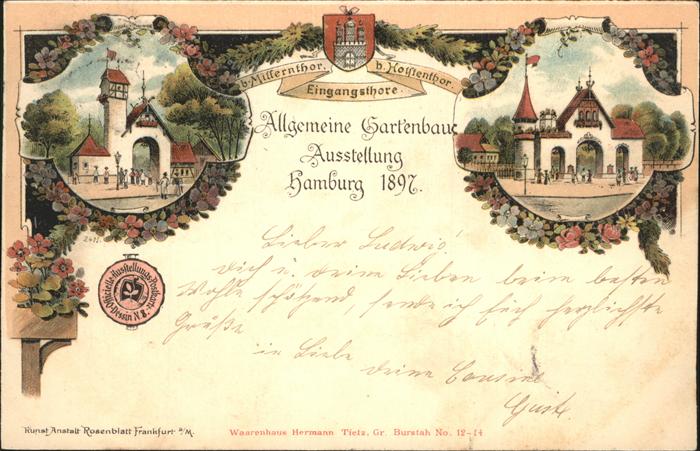 b. Millernthor. b. Holstenthor.
Eingangsthore.
Allgemeine Gartenbau
Ausstellung
Hamburg 1897.
Lieber Ludwig!
Dich u. deine Lieben beim besten
Wohle schätzend, sende ich Euch herzlichste
Grüße
in Liebe
deine Cousine
Officielle Ausstellungs-Postkarte
Dessin N. 8.
Kunst Anstalt Rosenblatt Frankfurt a/M.
Waarenhaus Hermann Tietz, Gr. Burstah No. 12-14